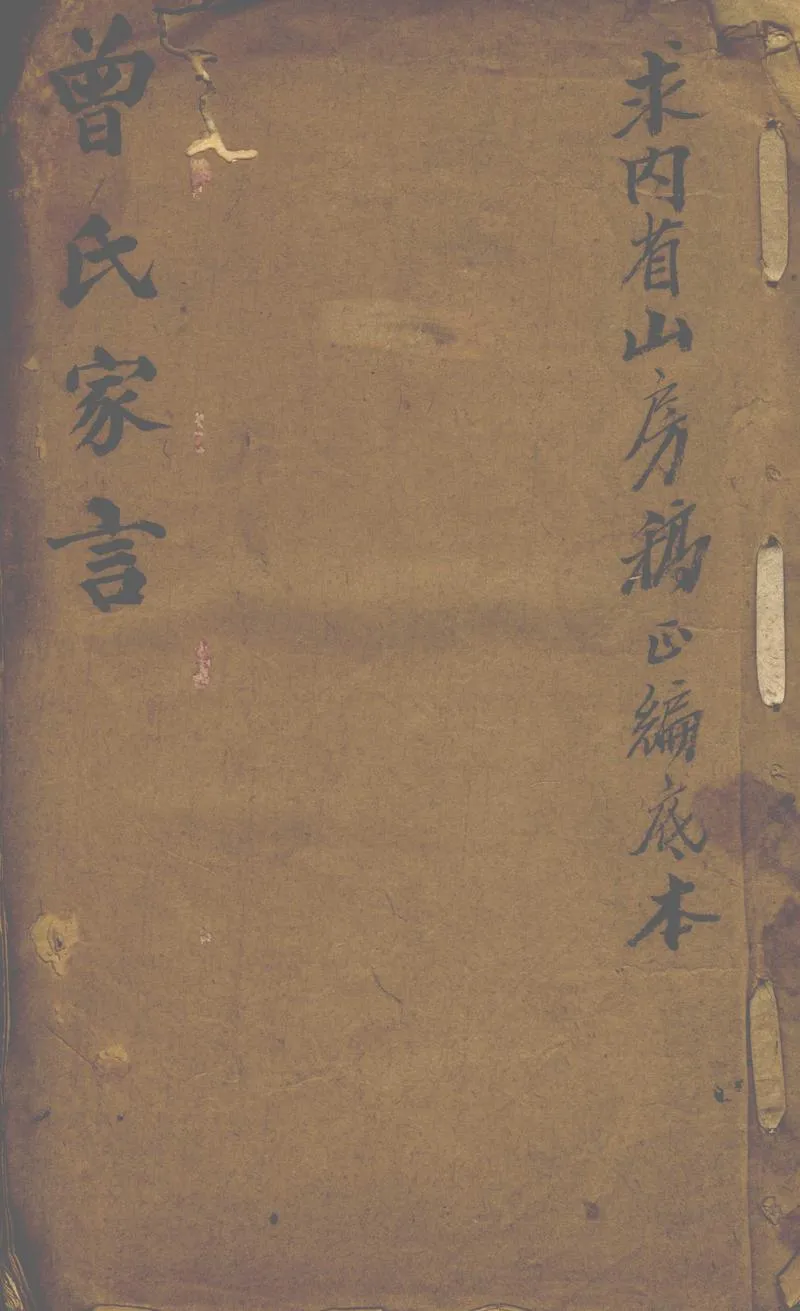 求内省山房稿正編底本
曾氏家言